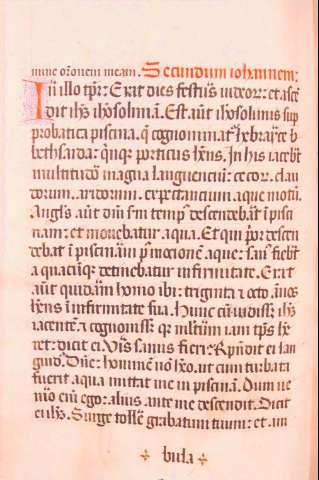 mine orōnem meam. Secundum iohannem:
In illo tp̄r: Erat dies festus iudeor: et ascē
dit ih̄s ih̄osolimā. Est aūt ih̄osolimis sup
probatica piscina. q̄ cognominat᷑ hebrayce b
bethsaida: q̄nq̄ porticus h̄ns. In his iacebāt
multitudo magna languenciū: cecor. clau
dorum. aridorum. expectancium aque motū.
Angl̄s aūt dn̄i s̄m temp̄s descendebat in pisci
nam: et mouebatur aqua. Et qui p̄or descen
debat in piscinā p̄ mocionē aque: san᷒ fiebat
a quacūq̄ detinebatur infirmitate. Erat
aūt quidā homo ibi: triginta et octo ān̄os
h̄ens in infirmitate sua. Hunc cū uidiss̄ ih̄s
iacentē: et cognoviss̄ q̄ multū iam tp̄s h̄e
ret: dicit ei: Vis sanus fieri: Rn̄dit ei lan
guid᷒. Dn̄e: hominē nō h̄eo. ut cum turbata
fuerit aqua mittat me in piscinā. Dum ue
nio eīm ego: alius ante me descendit. Dicit
ei ih̄s. Surge tolle grabatum tuum: et am
bula